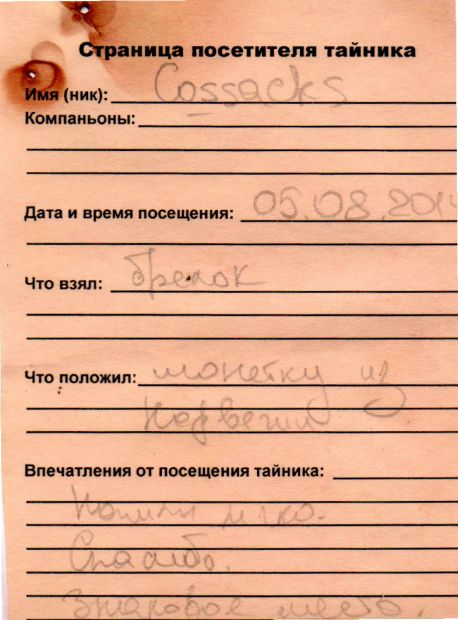 Страница посетителя тайника
Имя (ник): Cossacks
Компаньоны:
Дата и время посещения: 05.08.2014
Что взял: брелок
Что положил: монетку из
Норвегии
Впечатления от посещения тайника:
Нашли легко.
Спасибо.
Знаковое место.